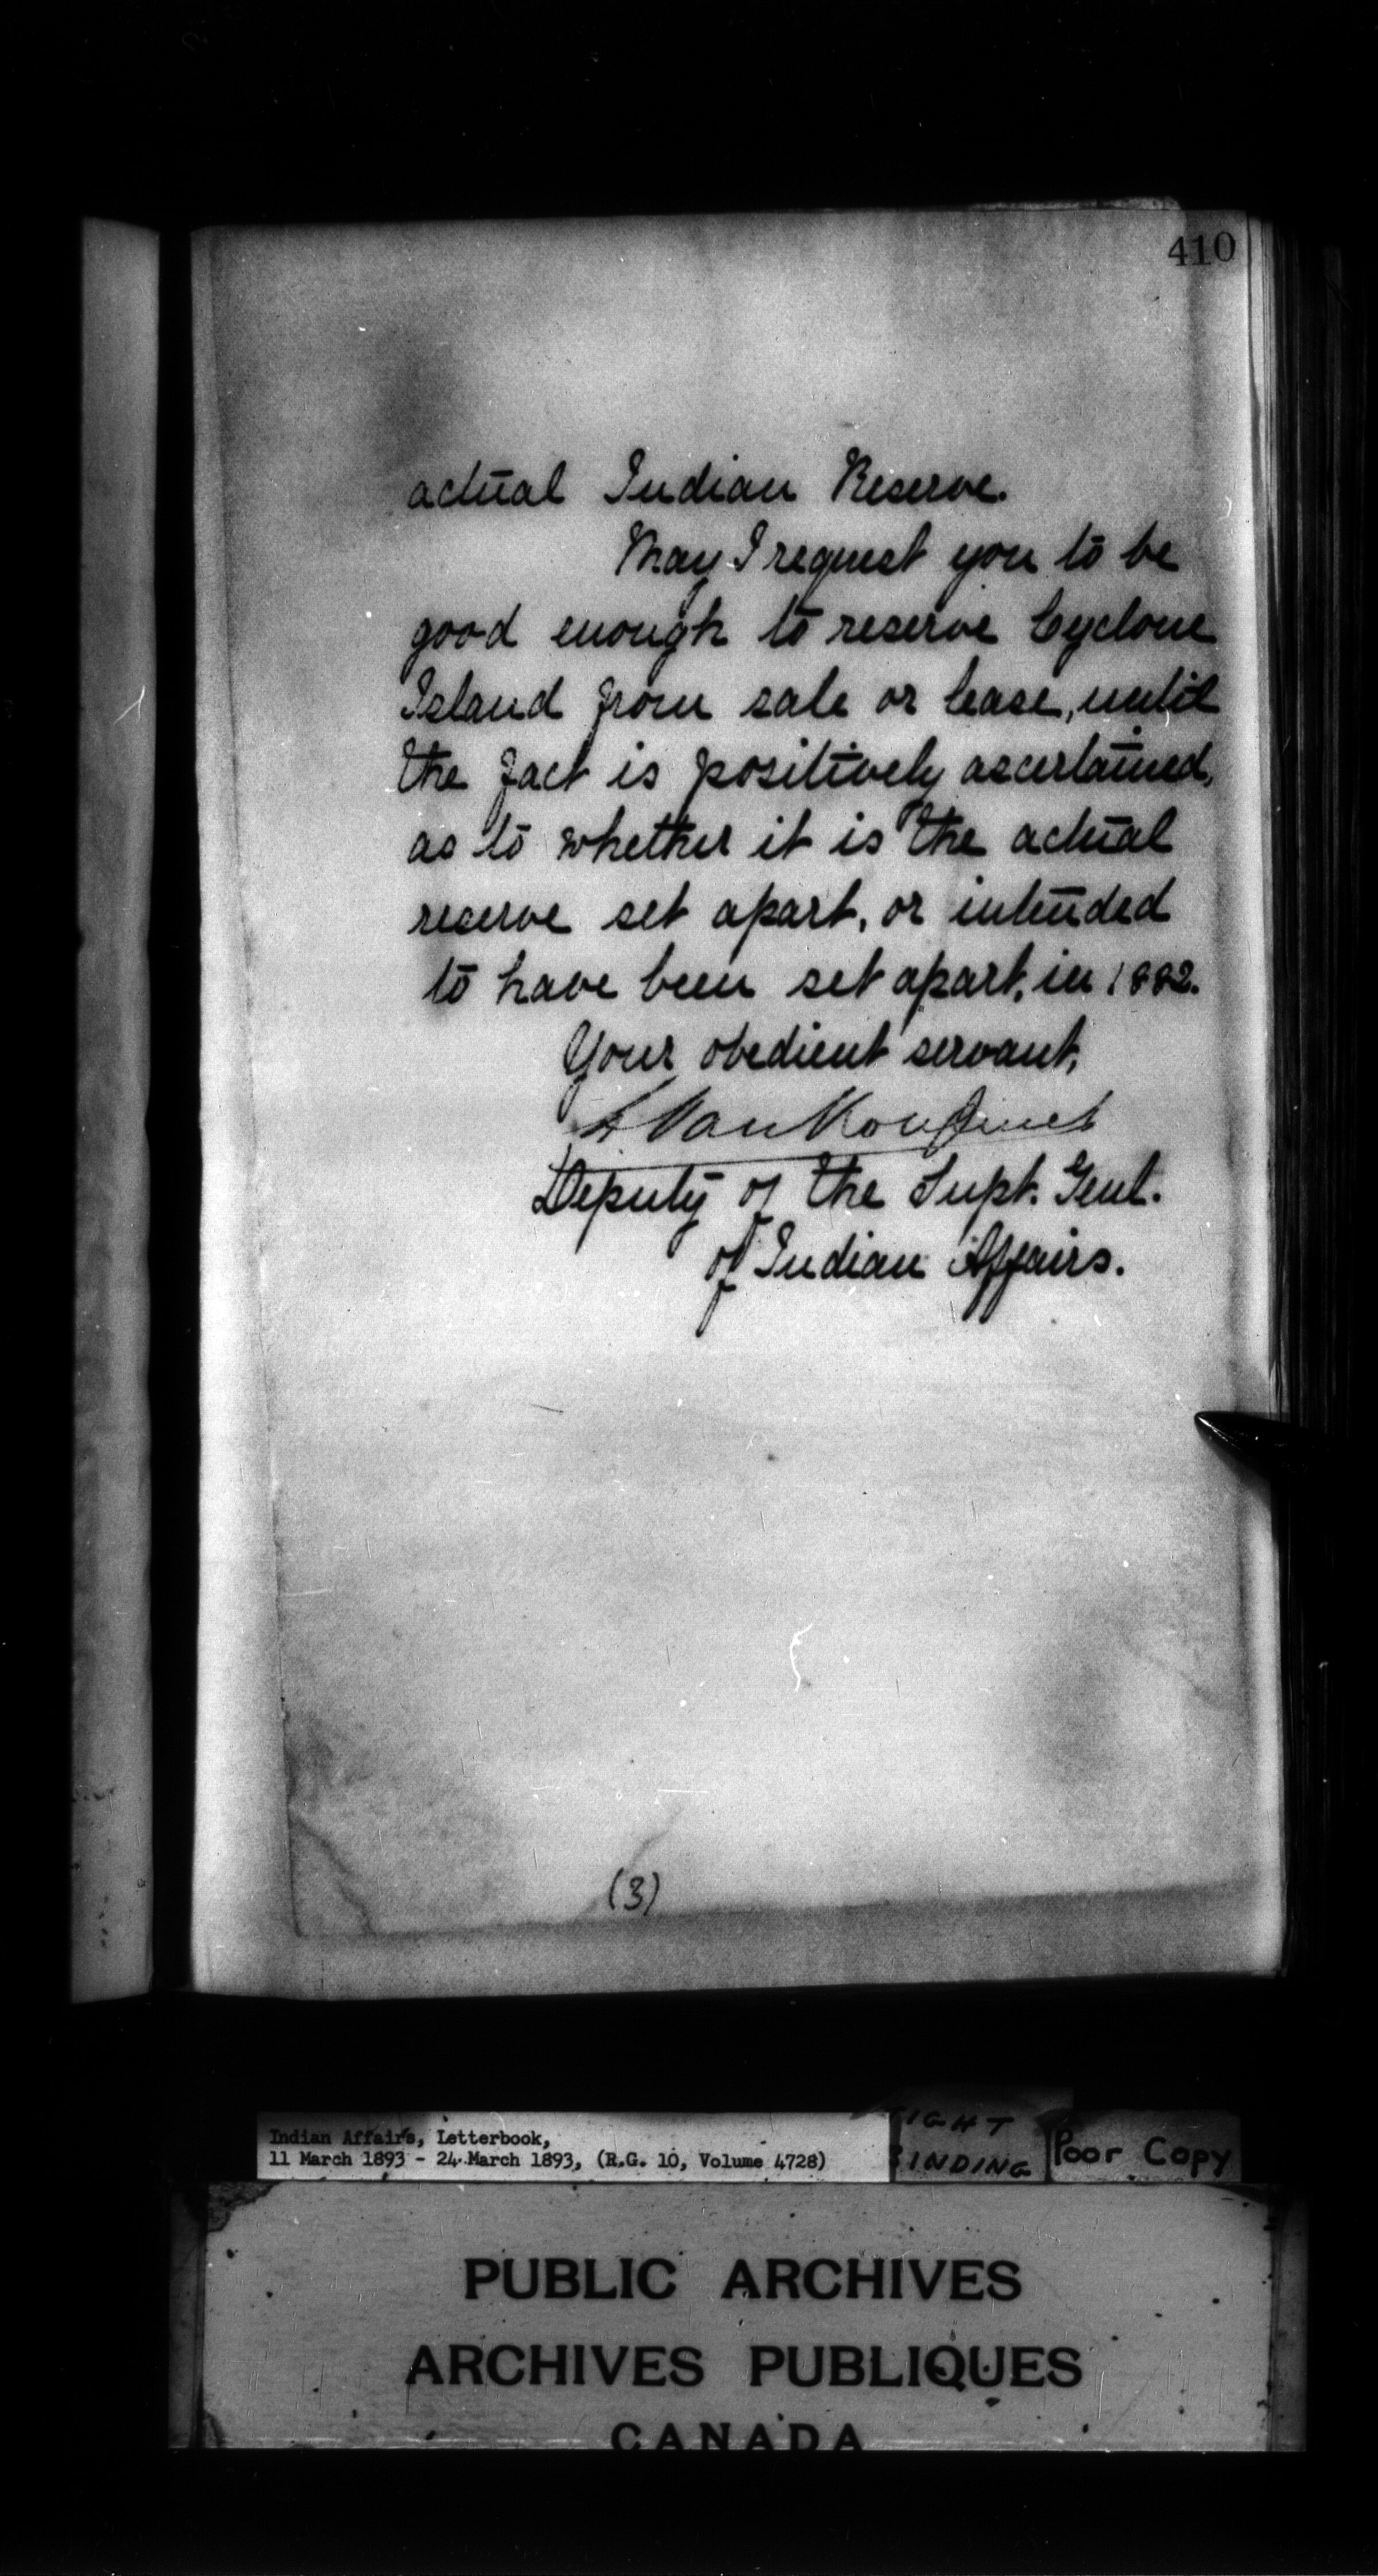 410
actual Indian Reserve.
May I request you to be
good enough to reserve Cyclone
Island from sale or lease, until
the fact is positively ascertained,
as to whether it is the actual
reserve set apart, or intended
to have been set apart, in 1882.
Your obedient servant,
L Vankoughnet
Deputy of the Supt. Genl.
of Indian Affairs.
(3)
Indian Affairs, Letterbook,
11 March 1893 - 24 March 1893, (R.G. 10, Volume 4728)
TIGHT
BINDING
Poor Copy
PUBLIC ARCHIVES
ARCHIVES PUBLIQUES
CANADA